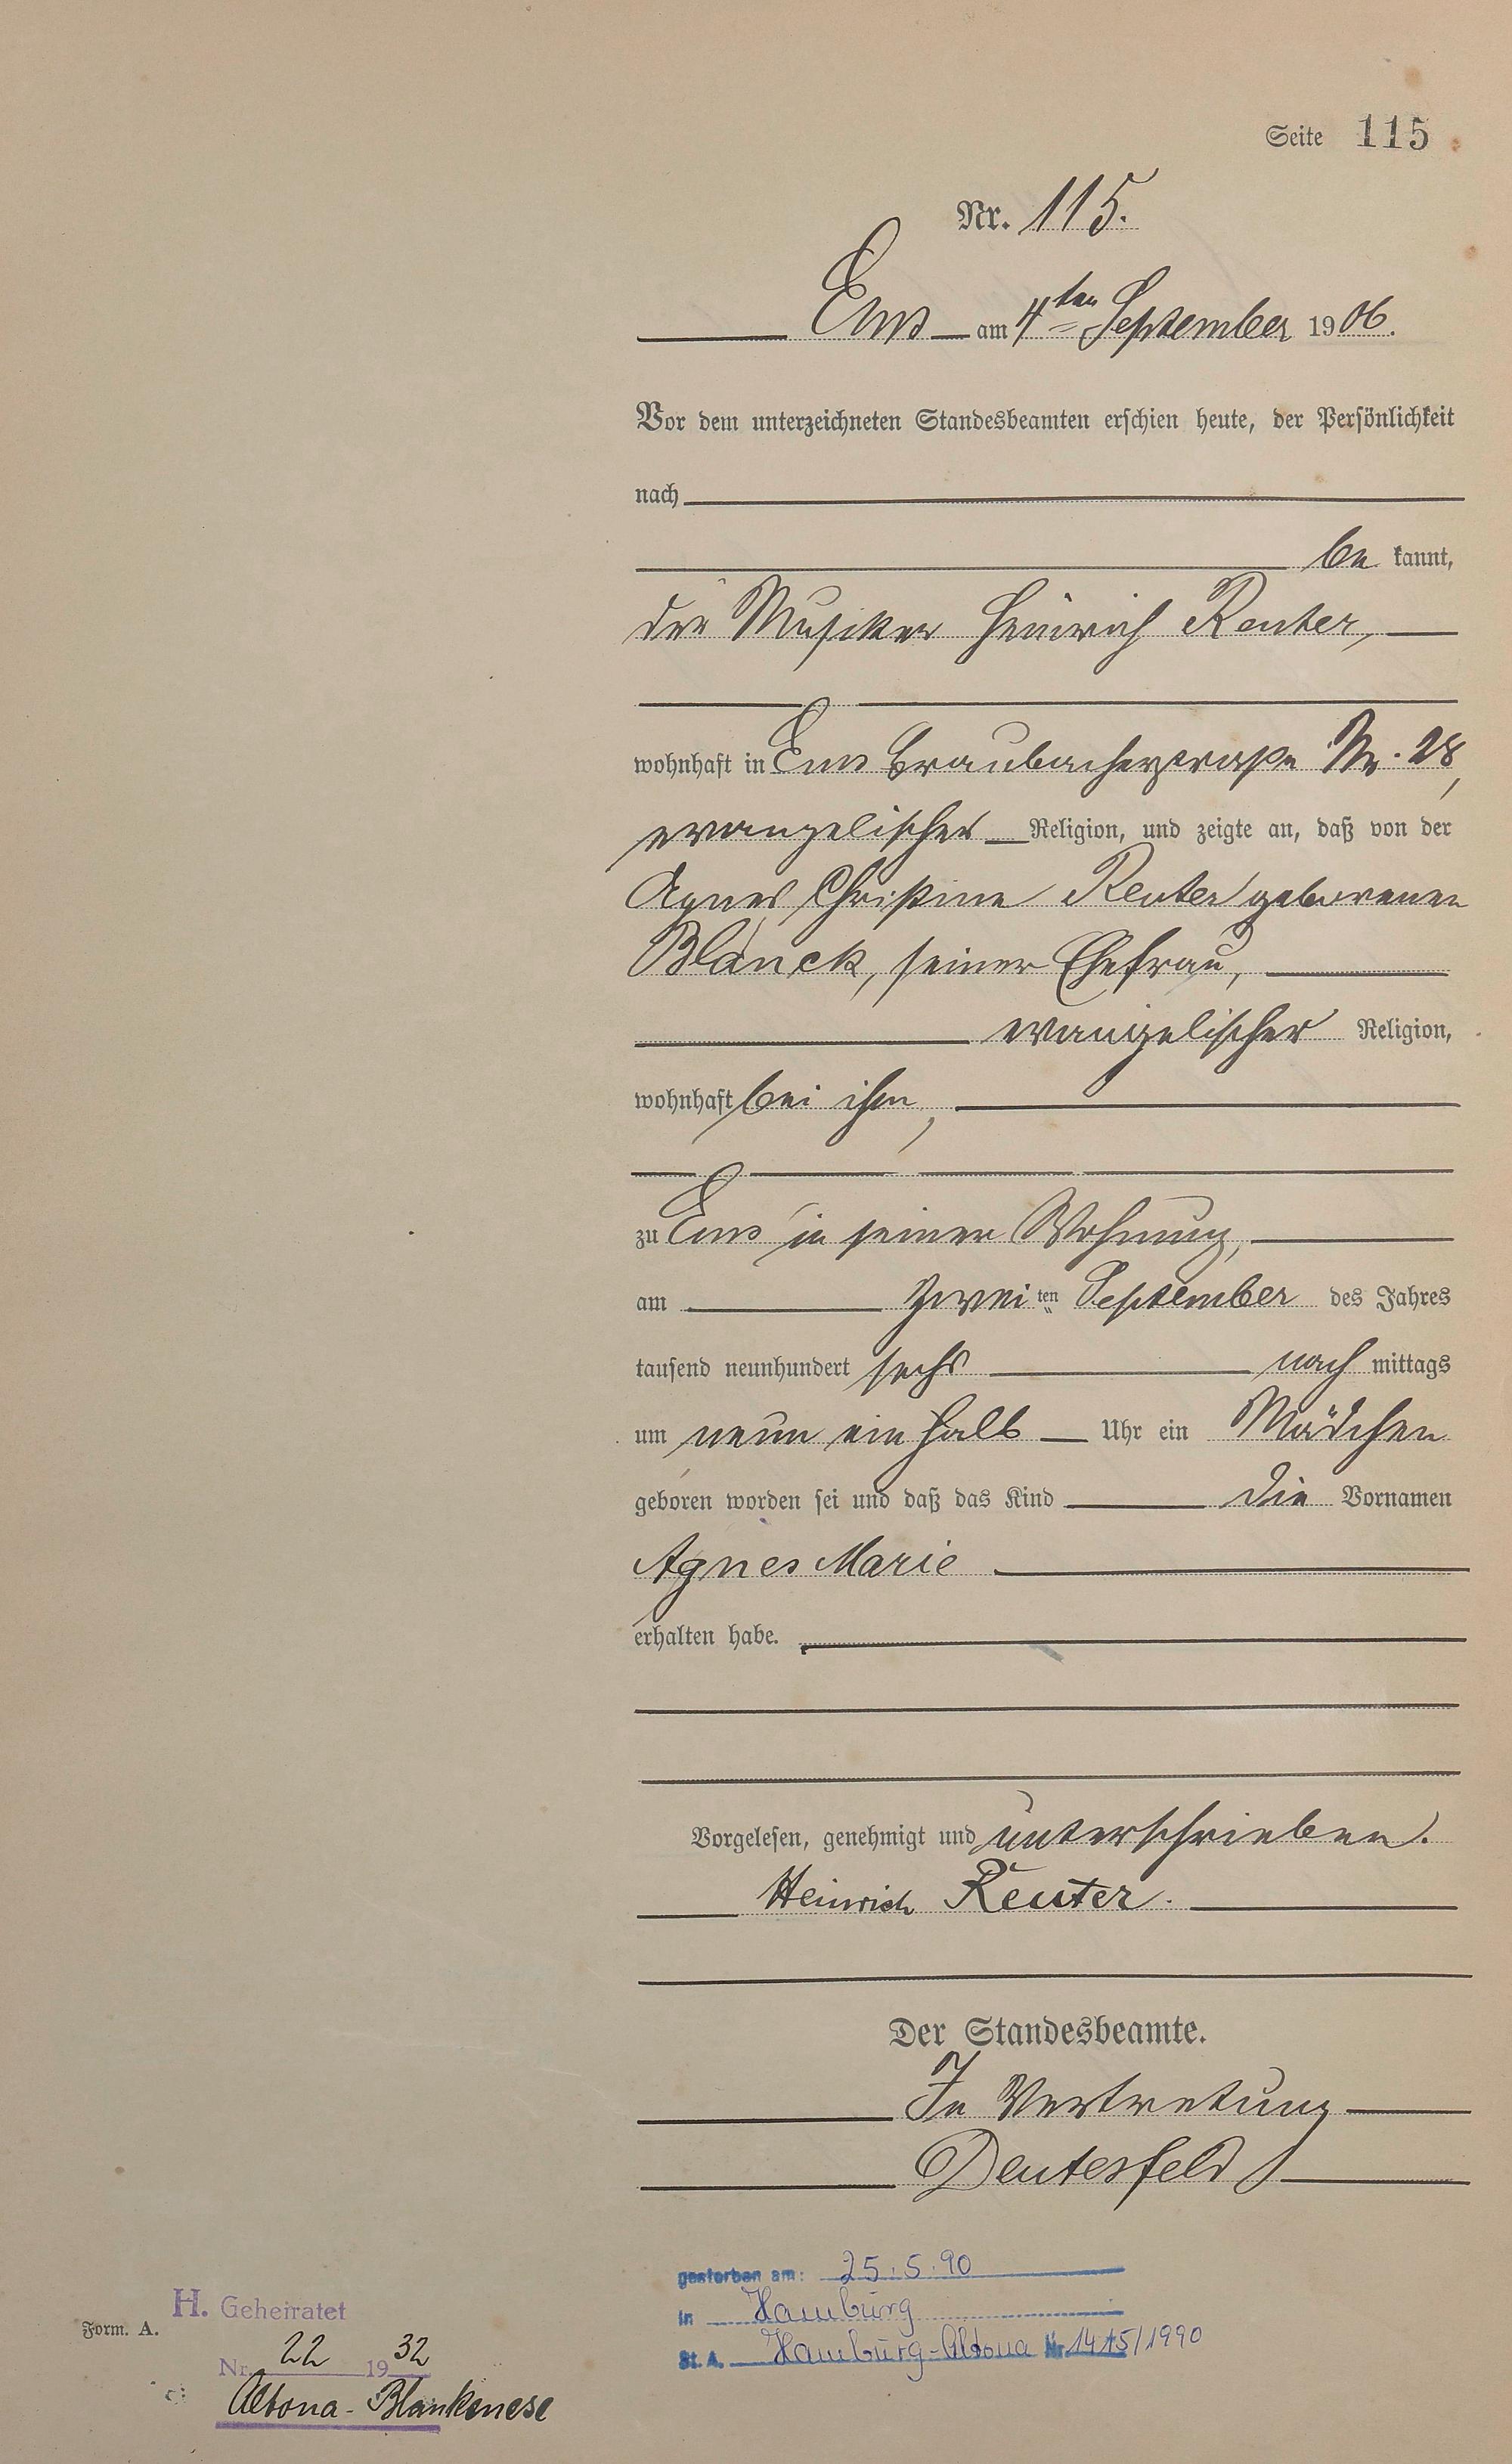 Seite 115
Nr. 115.
Ems am 4ten September 1906.
Vor dem unterzeichneten Standesbeamten erschien heute, der Persönlichkeit
nach
be kannt,
der Musiker Heinrich Reuter,
wohnhaft in Ems Braubacherstraße Nr. 28,
evangelischer Religion, und zeigte an, daß von der
Agnes Christine Reuter geborenen
Blanck, seiner Ehefrau,
evangelischer Religion,
wohnhaft bei ihm,
zu Ems in seiner Wohnung,
am zweiten September des Jahres
tausend neunhundert sechs nach mittags
um neun ein halb Uhr ein Mädchen
geboren worden sei und daß das Kind die Vornamen
Agnes Marie
erhalten habe.
Vorgelesen, genehmigt und unterschrieben.
Heinrich Reuter.
Der Standesbeamte.
In Vertretung
Deutesfeld
gestorben am: 25.5.90
in Hamburg
St. A. Hamburg-Altona Nr. 1415/1990
H. Geheiratet
Form. A.
Nr. 22 1932
Altona-Blankenese